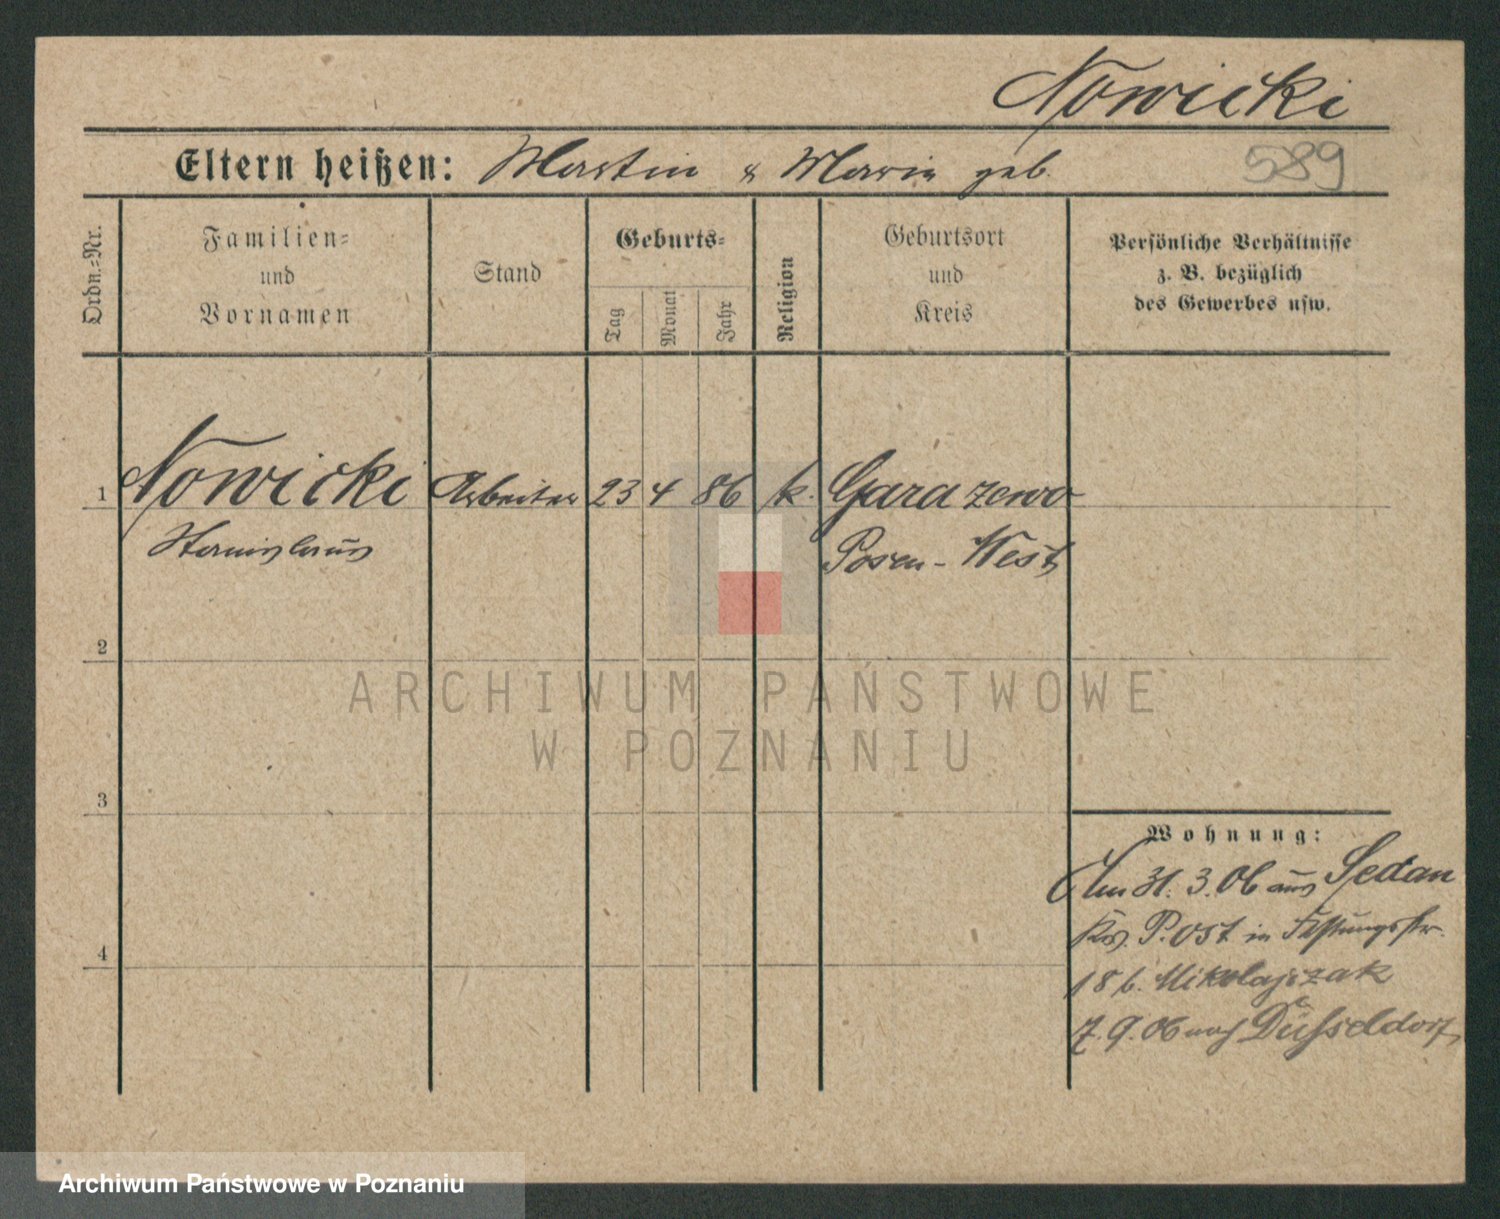 Nowicki
Eltern heißen: Martin & Marie geb.
589
Ordn.-Nr.
Familien-
und
Vornamen
Stand
Geburts-
Tag
Monat
Jahr
Religion
Geburtsort
und
Kreis
Persönliche Verhältnisse
z. B. bezüglich
des Gewerbes usw.
1 Nowicki Arbeiter 23 4 86 k. Garazewo
Stanislaus Posen-West
2
ARCHIWUM PAŃSTWOWE
W POZNANIU
3
Wohnung:
Am 31.3.06 aus Sedan
Krs. P. Ost in Festungsstr.
4
18 b. Mikolajczak
7.9.06 nach Düsseldorf
Archiwum Państwowe w Poznaniu